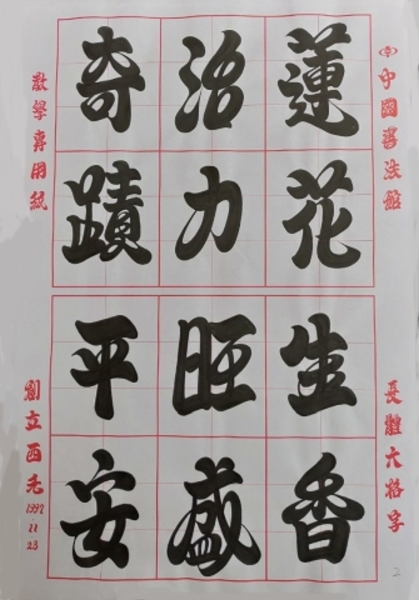 中國書法館
長體六格字
蓮花生香
治力旺盛
奇蹟平安
教學專用紙
創立西元
1997
11
23
2